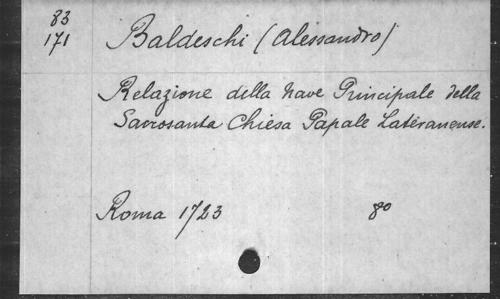 83
171
Baldeschi (Alessandro)
Relazione della Nave Principale della
Sacrosanta Chiesa Papale Lateranense.
Roma 1723 8o